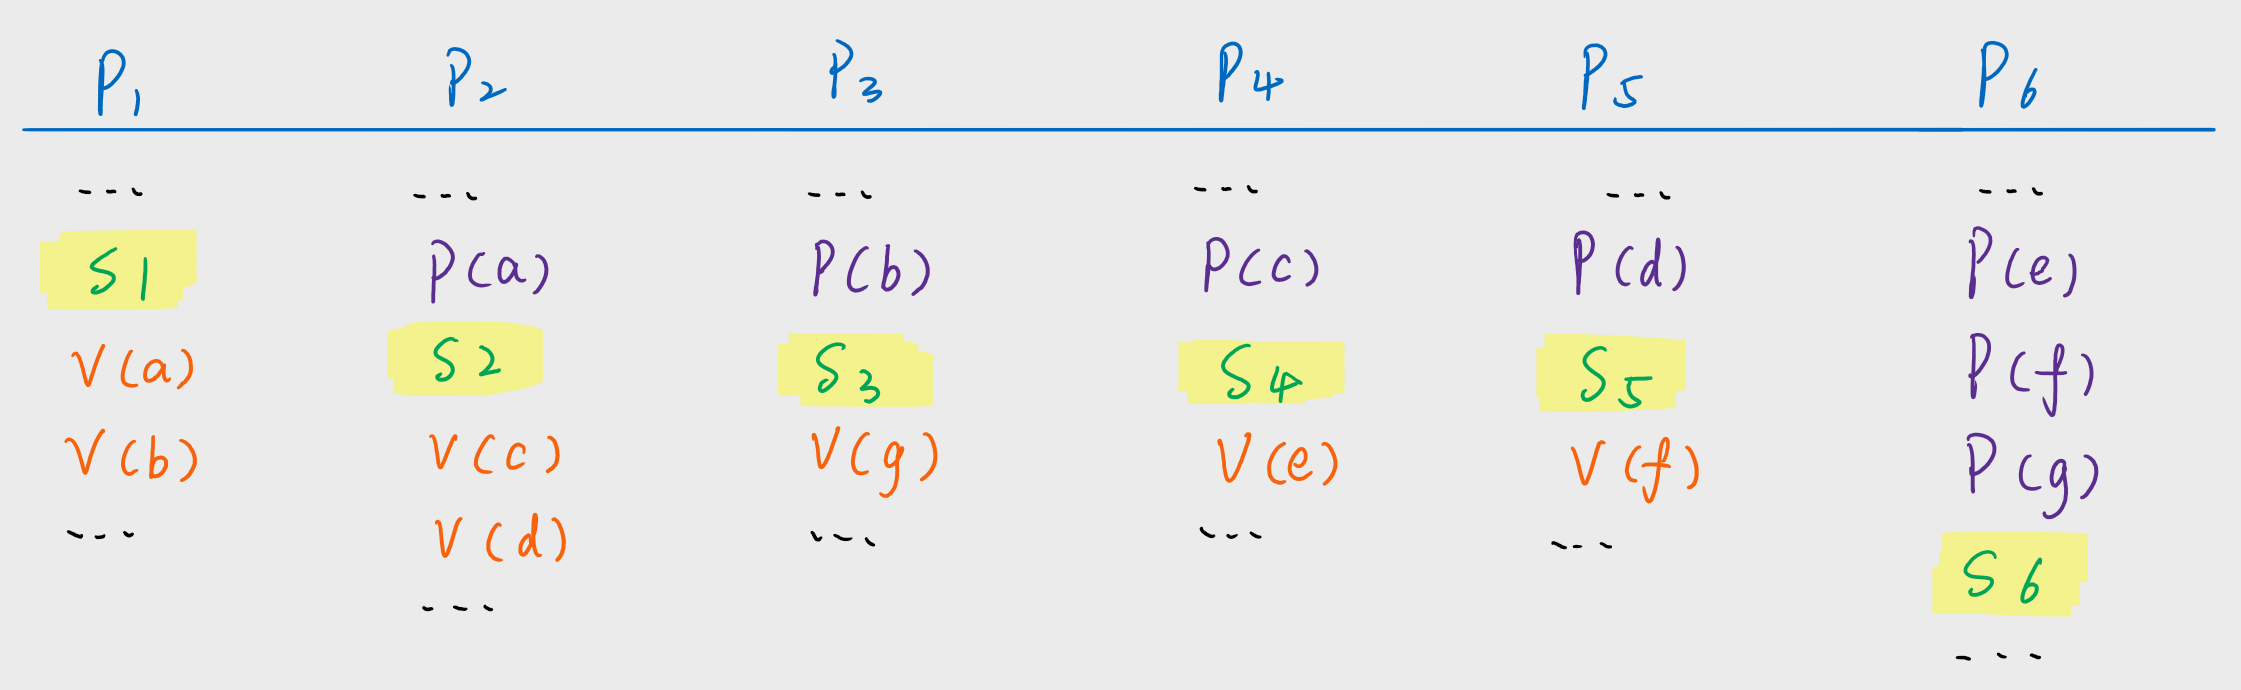 P1 P2 P3 P4 P5 P6
--- --- --- --- --- ---
S1 P(a) P(b) P(c) P(d) P(e)
V(a) S2 S3 S4 S5 P(f)
V(b) V(c) V(g) V(e) V(f) P(g)
--- V(d) --- --- --- S6
--- ---